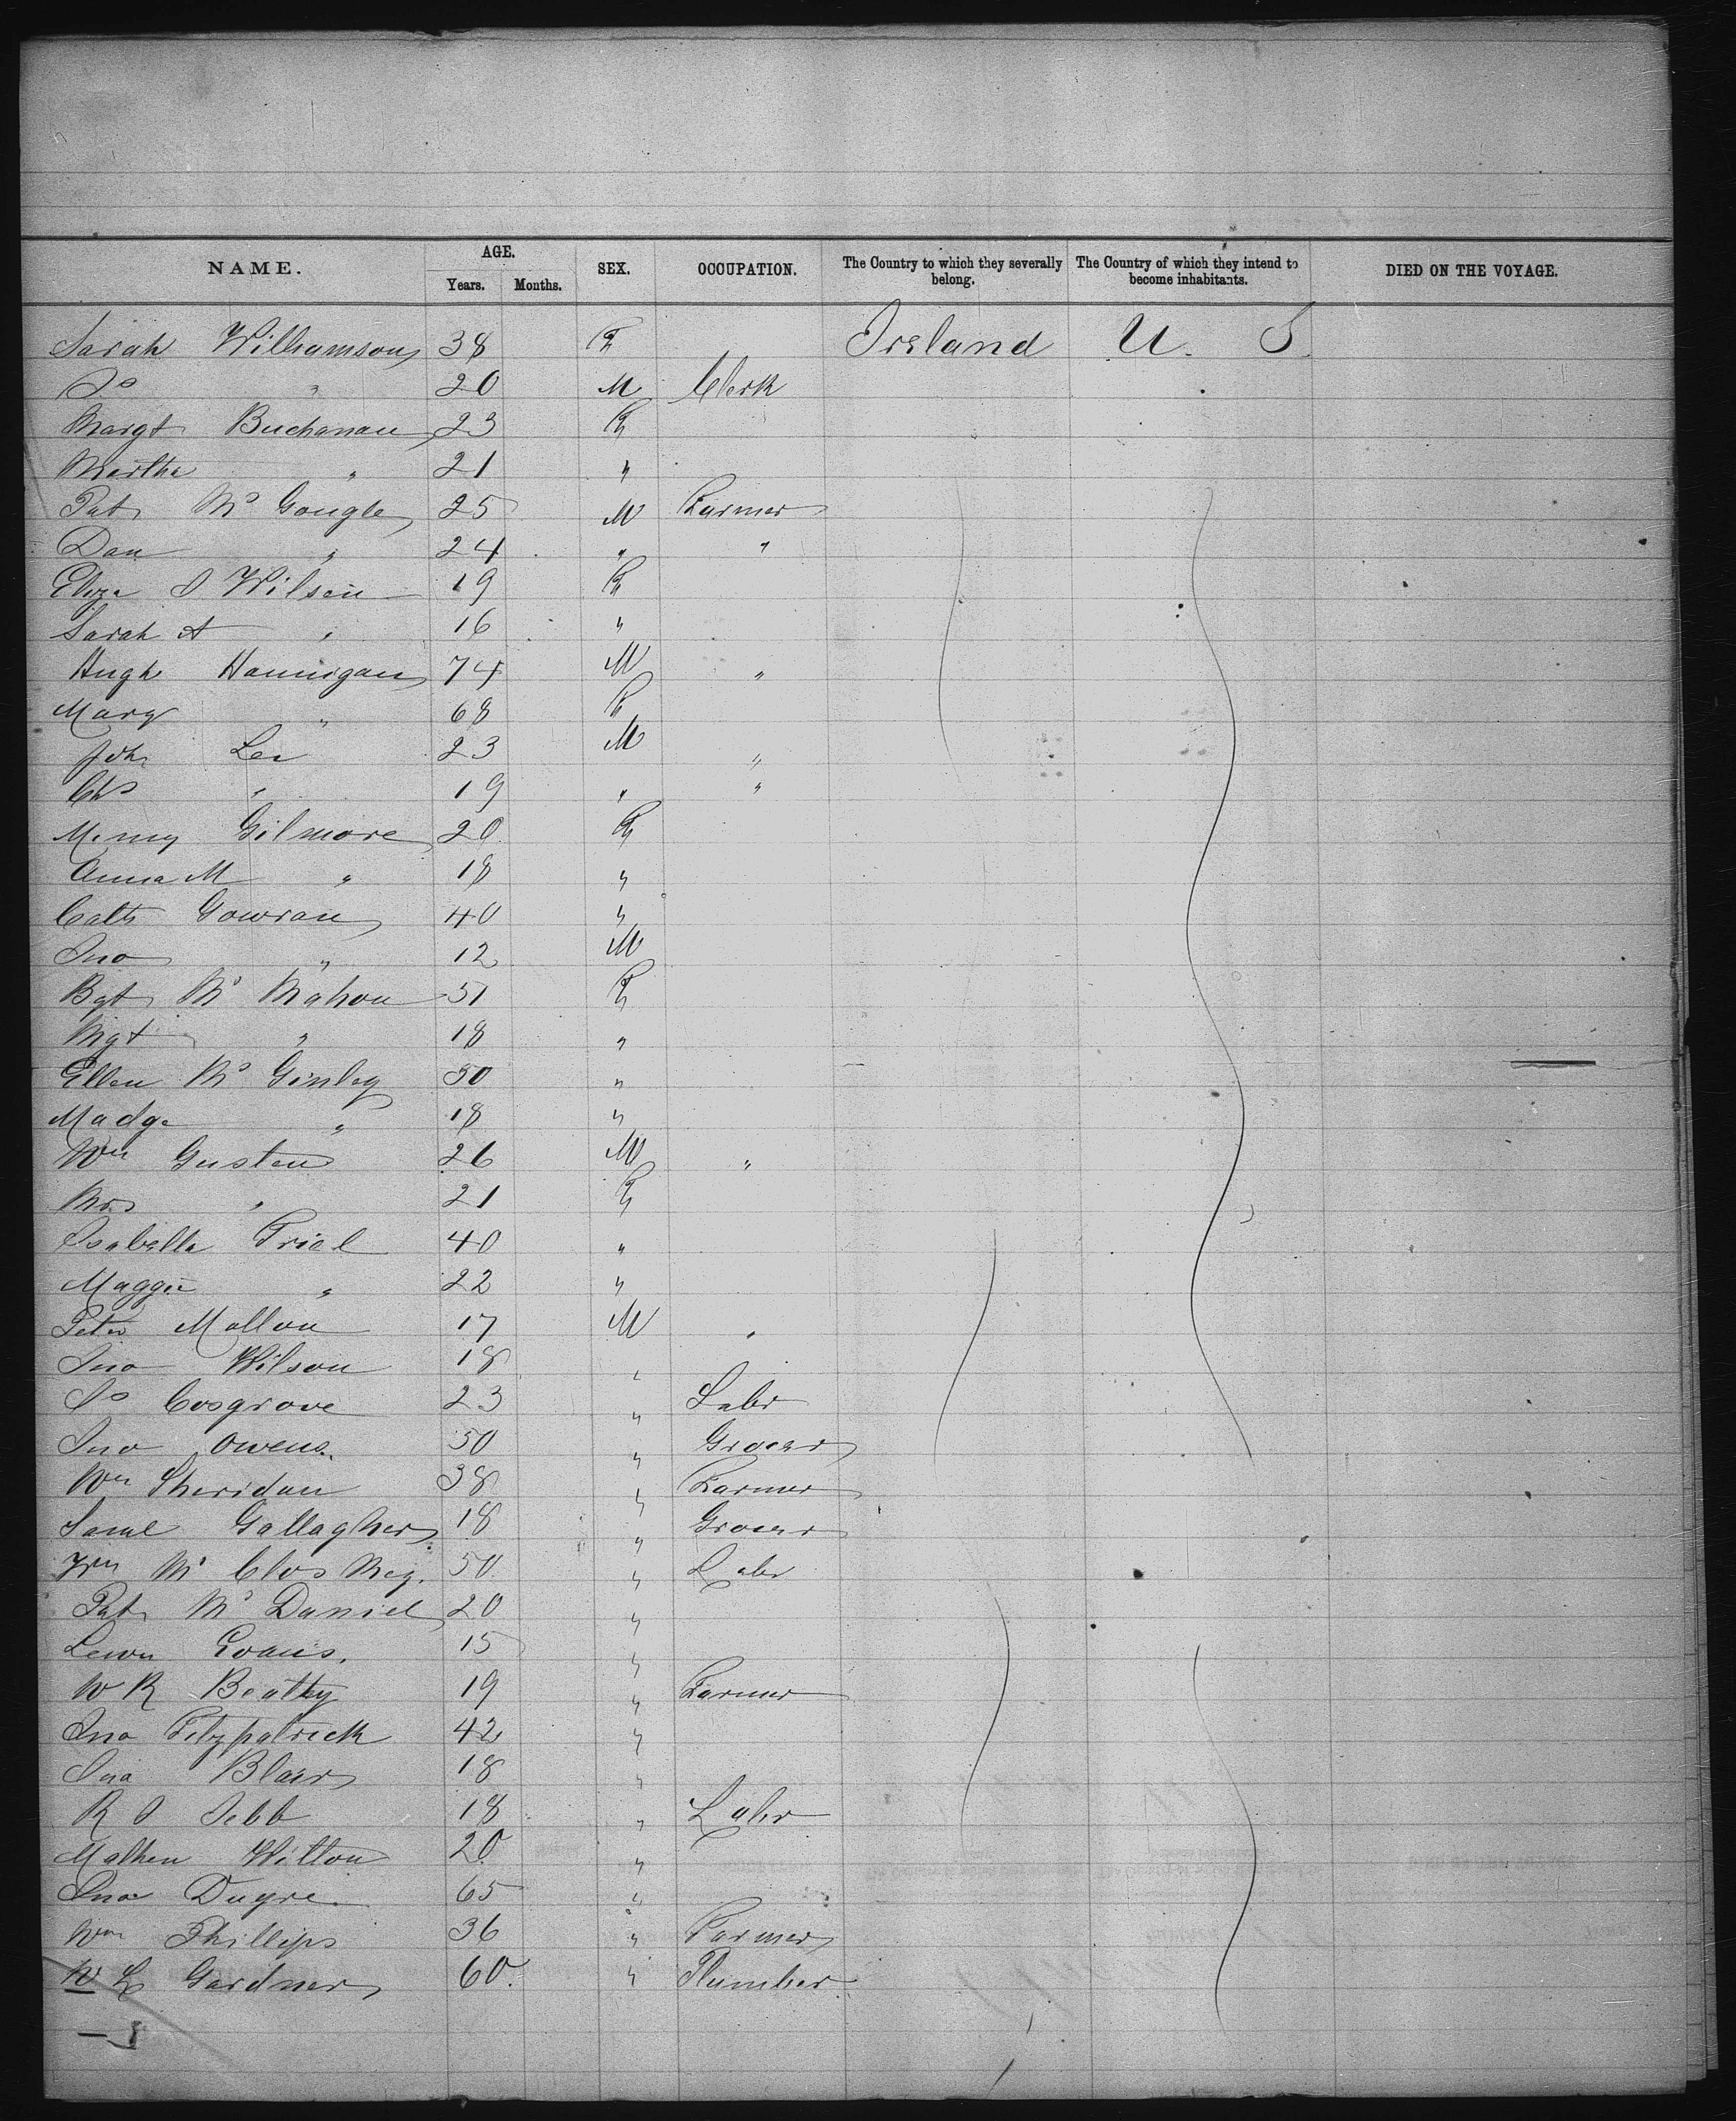 NAME. AGE. SEX. OCCUPATION. The Country to which they severally belong. The Country of which they intend to become inhabitants. DIED ON THE VOYAGE.
Years. Months.
Sarah Williamson 38 F Ireland U. S.
Js " 20 M Clerk
Margt Buchanan 23 F
Martha " 21 "
Pat Mc Gongle 25 M Farmer
Dan " 24 " "
Eliza J Wilson 19 F
Sarah A " 16 "
Hugh Hannigan 74 M "
Mary " 68 F
John Lee 23 M "
Chs " 19 " "
Gilmore 20 F
Anna M " 18 "
Cath Gowran 40 "
Jno " 12 M
Bgt Mc Mahon 51 F
Mgt " 18 "
Ellen Mc Ginley 50 "
Madge " 18 "
Wm Gusten 26 M "
Mrs " 21 F
Isabella Friel 40 "
Maggie " 22 "
Peter Mallon 17 M "
Jno Wilson 18 "
Js Cosgrove 23 " Labr
Jno Owens. 50 " Grocer
Wm Sheridan 38 " Farmer
Saml Gallagher 18 " Grocer
Wm Mc 50 " Labr
Pat Mc Daniel 20 "
Evans. 15 "
W R Beatty 19 " Farmer
Jno Fitzpatrick 42 "
Jno Blair 18 "
R J Jebb 18 " Labr
Mathew Witton 20 "
Jno 65 "
Wm Phillips 36 " Farmer
W L Gardner 60. " Plumber